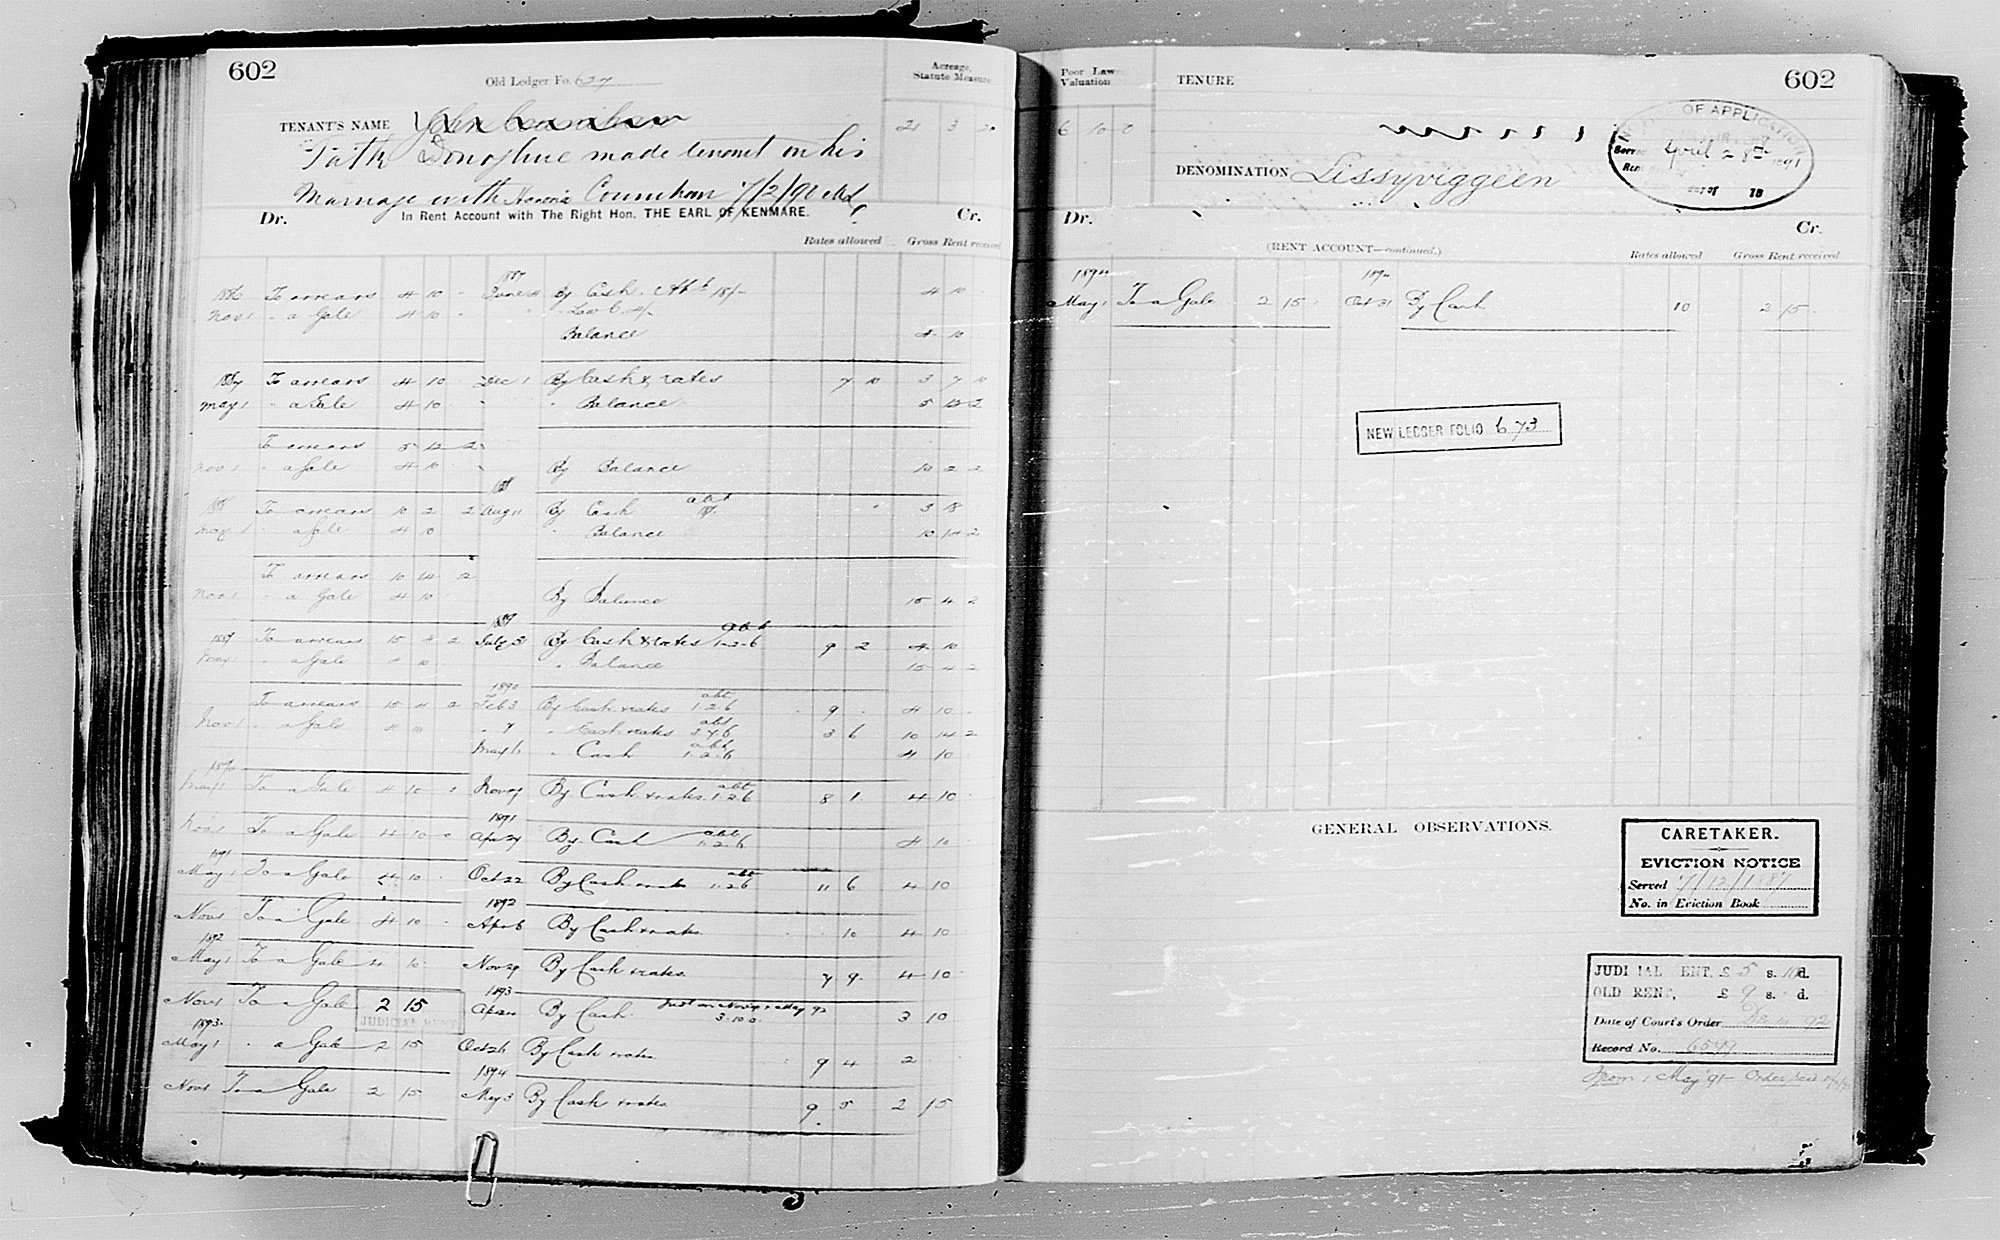 602
Old Ledger Fo. 627
Acreage, Statute Measure
TENANT'S NAME John Counihan
21 3
Patk Donoghue made tenant on his
Marriage with Honoria Counihan 7/2/91
Dr. In Rent Account with The Right Hon. THE EARL OF KENMARE. Cr.
Rates allowed Gross Rent received
1887
1886 To arrears 4 10 - June By Cash Abt 18/- 4 10
Nov 1 - a Gale 4 10 - - Law C.
Balance 4 10
1887 To arrears 4 10 Dec 1 By Cash & rates 7 10 3 7 10
May 1 - a Gale 4 10 - Balance 5 12 2
To arrears 5 12 2
Nov 1 - a Gale 4 10 By Balance 10 2 2
188
188 To arrears 10 2 2 Aug 11 By Cash abt 3 18
May 1 - a Gale 4 10 - Balance 10 14 2
To arrears 10 14 2
Nov 1 - a Gale 4 10 By Balance 15 4 2
1889
1889 To arrears 15 4 2 July 31 By Cash & rates abt 1-2-6 9 2 4 10
May 1 - a Gale 4 10 - Balance 15 4 2
1890
To arrears 15 4 2 Feb 3 By Cash & rates abt 1-2-6 9 - 4 10
Nov 1 - a Gale 4 10 " 7 - Cash & rates abt 3 7 6 3 6 10 14 2
May 6 - Cash abt 1-2-6 4 10
1890
May 1 To a Gale 4 10 Nov 7 By Cash & rates abt 1-2-6 8 1 4 10
1891
Nov 1 To a Gale 4 10 0 Apr 27 By Cash abt 1-2-6 4 10
1891
May 1 To a Gale 4 10 - Oct 22 By Cash & rates abt 1-2-6 11 6 4 10
1892
Nov 1 To a Gale 4 10 - Apr 6 By Cash & rates 10 4 10
1892
May 1 To a Gale 4 10 Nov 29 By Cash & rates 7 9 4 10
1893
Nov 1 To a Gale 2 15 Apr 24 By Cash 3-10-0 3 10
JUDICIAL RENT
1893
May 1 - a Gale 2 15 Oct 26 By Cash & rates 9 4 2
1894
Nov 1 To a Gale 2 15 May 3 By Cash & rates 9 5 2 15
Poor Law Valuation
TENURE
602
6 10 0
NOTICE OF APPLICATION
April 28th 1891
day of 18
DENOMINATION Lissyviggeen
Dr. Cr.
(RENT ACCOUNT—continued.)
Rates allowed Gross Rent received
1894 1894
May 1 To a Gale 2 15 Oct 31 By Cash 10 2 15
NEW LEDGER FOLIO 673
GENERAL OBSERVATIONS.
CARETAKER.
EVICTION NOTICE
Served 7/12/1887
No. in Eviction Book
JUDICIAL RENT, £ 5 s. 10 d.
OLD RENT, £ 9 s. d.
Date of Court's Order 92
Record No. 6599
From 1 May 91 Order